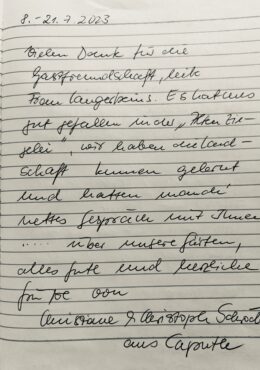 8. - 21.7.2023
Vielen Dank für die
Gastfreundschaft, liebe
Frau Langerbeins. Es hat uns
gut gefallen in der „Alten Zie-
gelei", wir haben die Land-
schaft kennen gelernt
und hatten manch'
nettes Gespräch mit Ihnen
..... über unsere Gärten,
alles Gute und herzliche
Grüße von
Christiane & Christoph
aus Caputh